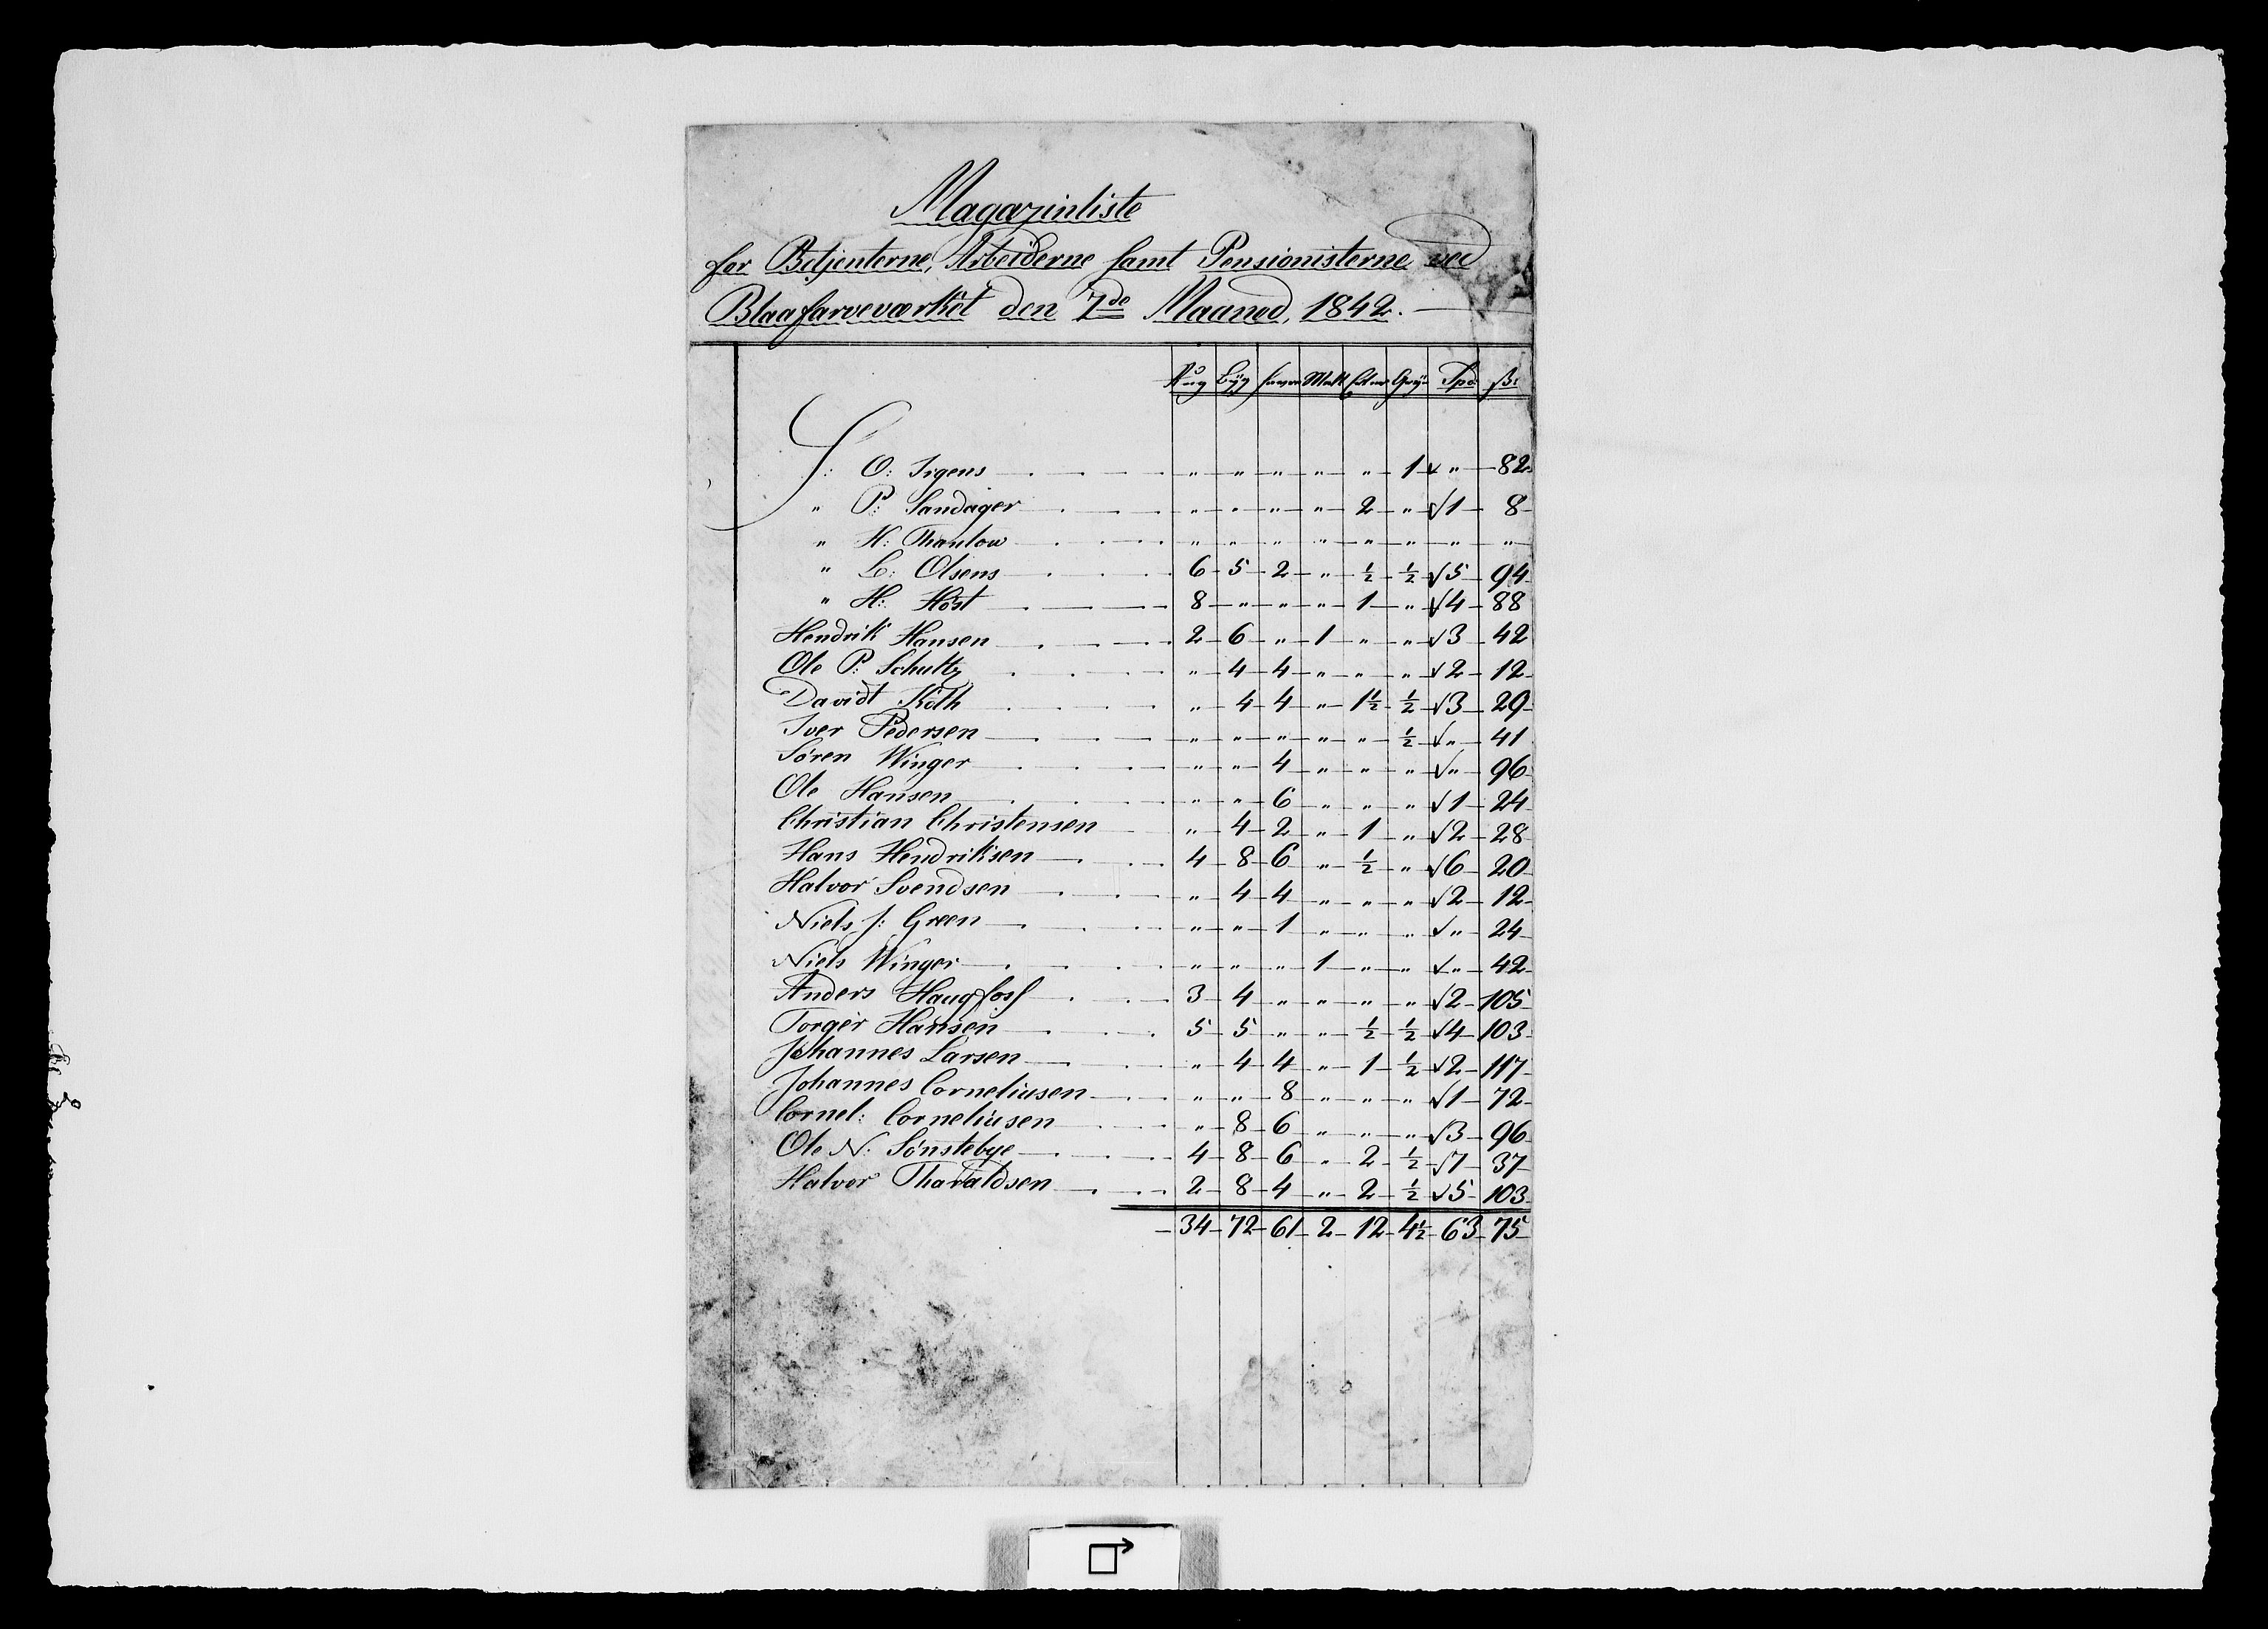 Magazinliste
for Betjenterne, Arbeiderne samt Pensionisterne ved
Blaafarveværket den 7de Maaned, 1842.
Rug Byg Havre Malt Erter Gryn Spd ß:
S: O: Irgens " " " " " 1 √ " 82
" P: Sandager " " " " 2 " √ 1 8
" H: Thaulow " " " " " " " "
" L: Olsens 6 5 2 " ½ ½ √ 5 94
" H: Høst 8 " " " 1 " √ 4 88
Hendrik Hansen 2 6 " 1 " " √ 3 42
Ole P: Schultz " 4 4 " " " √ 2 12
Davidt Köth " 4 4 " 1½ ½ √ 3 29
Iver Pedersen " " " " " ½ √ " 41
Søren Winger " " 4 " " " √ " 96
Ole Hansen " " 6 " " " √ 1 24
Christian Christensen " 4 2 " 1 " √ 2 28
Hans Hendriksen 4 8 6 " ½ " √ 6 20
Halvor Svendsen " 4 4 " " " √ 2 12
Niels J: Green " " 1 " " " √ " 24
Niels Winger " " " 1 " " √ " 42
Anders Haugfoss 3 4 " " " " √ 2 105
Torger Hansen 5 5 " " ½ ½ √ 4 103
Johannes Larsen " 4 4 " 1 ½ √ 2 117
Johannes Corneliusen " " 8 " " " √ 1 72
Cornel: Corneliusen " 8 6 " " " √ 3 96
Ole N: Sønstebye 4 8 6 " 2 ½ √ 7 37
Halvor Tharaldsen 2 8 4 " 2 ½ √ 5 103
34 72 61 2 12 4½ 63 75